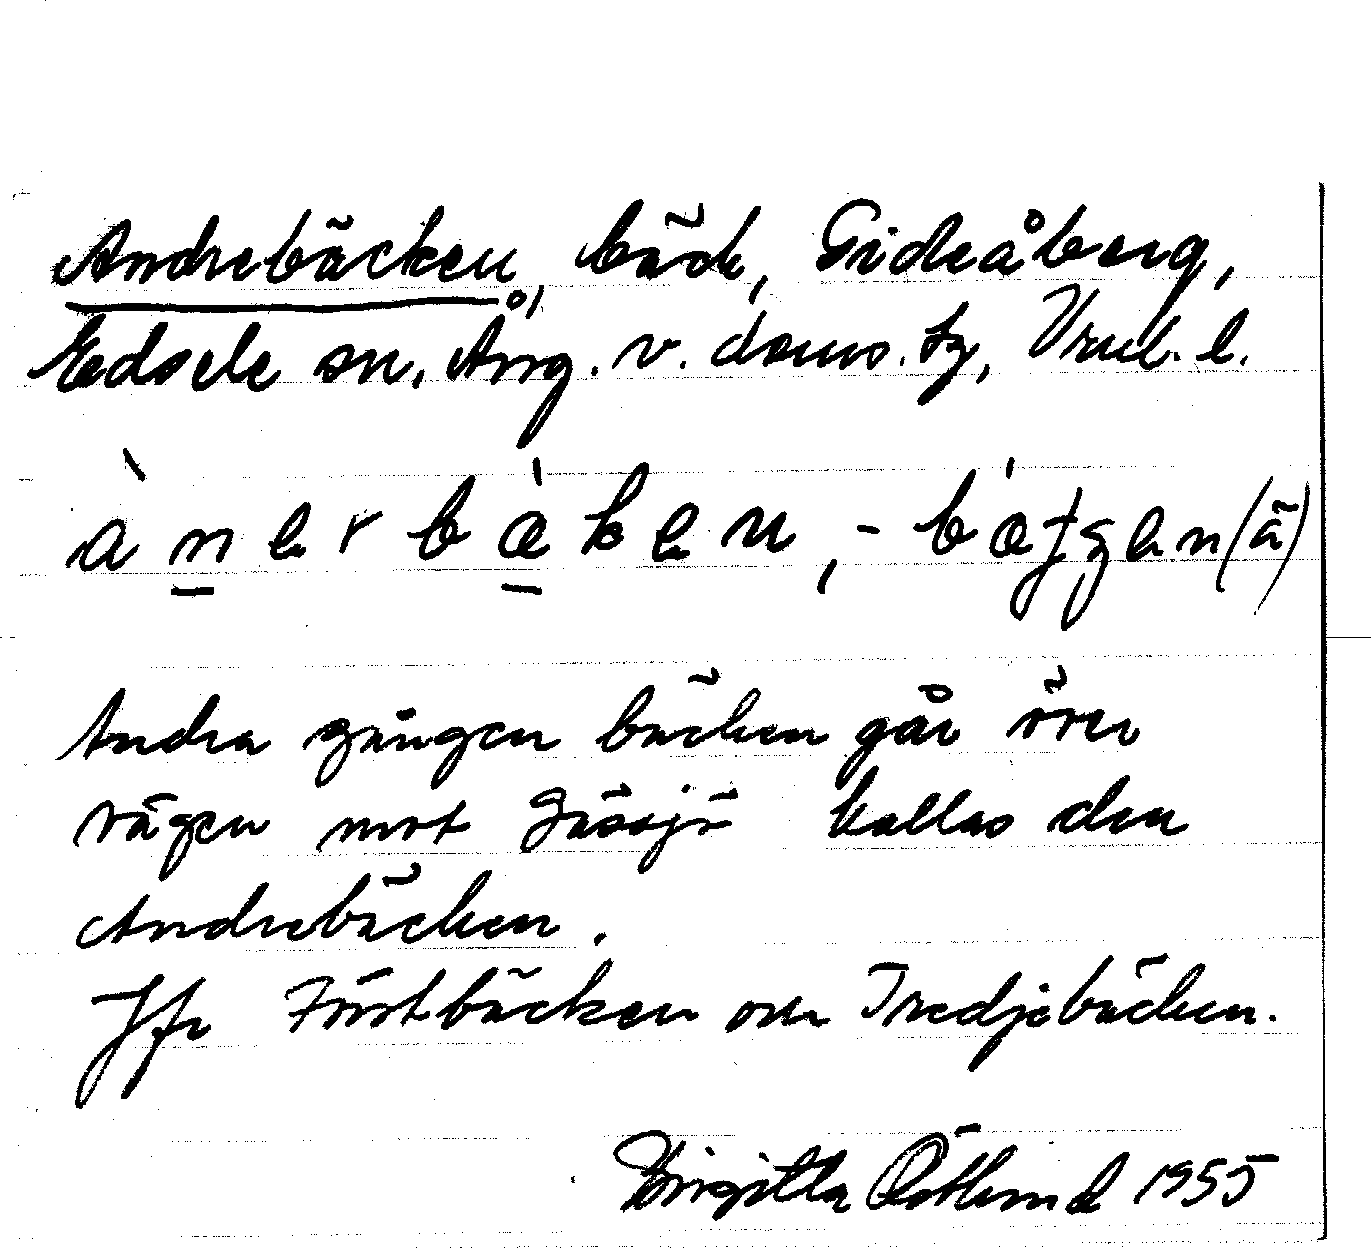 Andrebäcken, bäck, Gideåberg,
Edsele sn, Ång. v. doms. tg,
Andra gången bäcken går över
vägen mot Gässjö kallas den
Andrebäcken.
Jfr Förstbäcken om Tredjebäcken.
Birgitta Östlund 1955